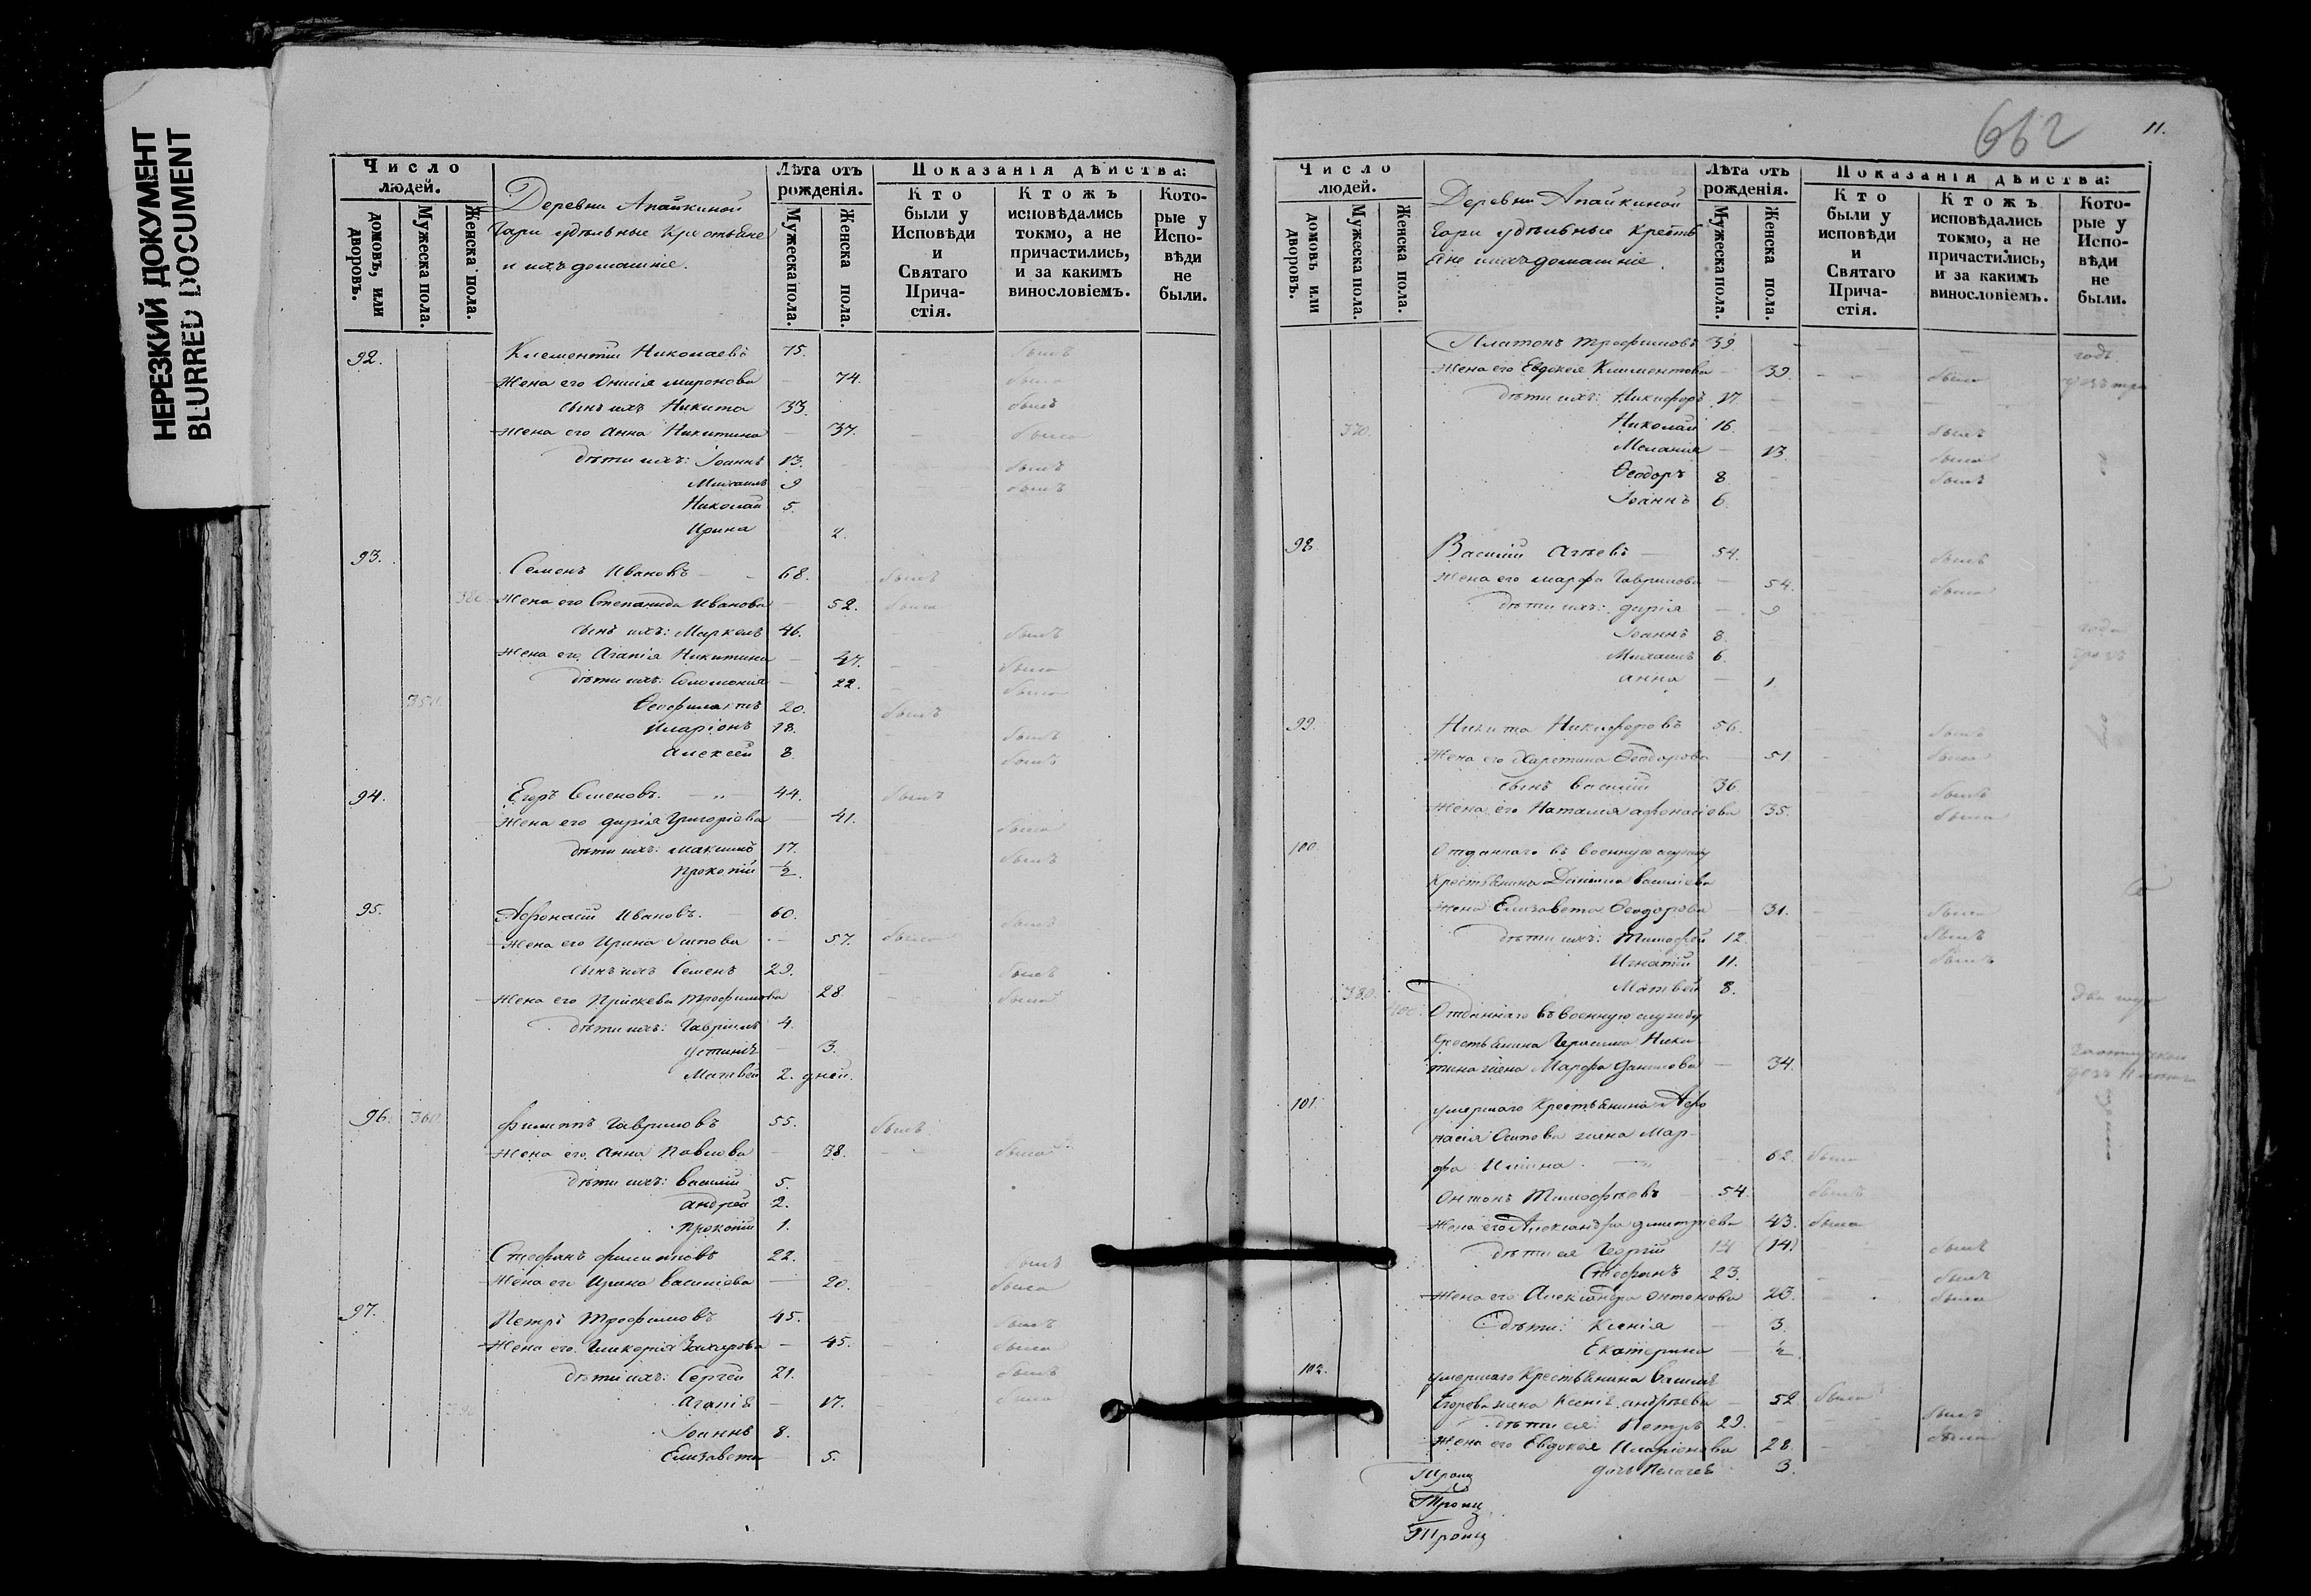 НЕРЕЗКИЙ ДОКУМЕНТ
BLURRED DOCUMENT
Число людей.
домовъ, или дворовъ.
Мужеска пола.
Женска пола.
Деревни Апайкиной
Гари удѣльные крестьяне
и ихъ домашніе.
Лѣта отъ рожденія.
Мужеска пола.
Женска пола.
Показанія дѣйства:
Кто были у Исповѣди и Святаго Причастія.
Ктожъ исповѣдались токмо, а не причастились, и за какимъ винословіемъ.
Которые у Исповѣди не были.
92. Клементій Николаевъ 75. былъ
Жена его Онисія Миронова 74. была
сынъ ихъ Никита 33. былъ
Жена его Анна Никитина 37. была
дѣти ихъ: Іоаннъ 13. былъ
Михаилъ 9 былъ
Николай 5.
Ирина 2.
93. Семенъ Ивановъ 68. былъ
Жена его Степанида Иванова 52. была
сынъ ихъ: Маркелъ 46. былъ
Жена его Агапія Никитина 47. была
дѣти ихъ: Соломонія 22. была
350. Ѳеофилактъ 20. былъ
Иларіонъ 18. былъ
Алексей 8. былъ
94. Егоръ Семеновъ. 44. былъ
Жена его Дарія Григоріева 41. была
дѣти ихъ: Максимъ 17. былъ
Прокопій ½.
95. Афонасій Ивановъ. 60. былъ
Жена его Ирина Осипова 57. была
сынъ ихъ Семенъ 29. былъ
Жена его Праскева Трофимова 28. была
дѣти ихъ: Гавріилъ 4.
Устинія 3.
Матвей 2. дней.
96. 360. Филиппъ Гавриловъ 55. былъ
Жена его Анна Павлова 38. была
дѣти ихъ: Василій 5.
Андрей 2.
Прокопій 1.
Стефанъ Филипповъ 22. былъ
Жена его Ирина Василіева 20. была
97. Петръ Трофимовъ 45. былъ
Жена его Гликерія Захарова 45. была
дѣти ихъ: Сергей 21. былъ
Агапія 17. была
Іоаннъ 8.
Елизавета 5.
662
11.
Число людей.
домовъ или дворовъ.
Мужеска пола.
Женска пола.
Деревни Апайкиной
Гари удѣльные кресть
яне и ихъ домашніе.
Лѣта отъ рожденія.
Мужеска пола.
Женска пола.
Показанія дѣйства:
Кто были у исповѣди и Святаго Причастія.
Ктожъ исповѣдались токмо, а не причастились, и за какимъ винословіемъ.
Которые у Исповѣди не были.
Платонъ Трофимовъ 39.
Жена его Евдокея Климентова 39. была
дѣти ихъ: Никифоръ 17.
370. Николай 16. былъ
Меланія 13. была
Ѳеодоръ 8. былъ
Іоаннъ 6.
98. Василій Агѣевъ 54. былъ
Жена его Марфа Гаврилова 54. была
дѣти ихъ: Дарія 9
Іоаннъ 8.
Михаилъ 6.
Анна 1.
99. Никита Никифоровъ 56. былъ
Жена его Харетина Ѳеодорова 51 была
сынъ Василій 36. былъ
Жена его Наталія Афонасіева 35. была
100. Отданнаго въ военную службу
крестьянина Данила Василіева
жена Елизавета Ѳеодорова 31. была
дѣти ихъ: Тимофей 12. былъ
Игнатій 11. былъ
380. Матвей 8.
400. Отданнаго въ военную службу
крестьянина Герасима Ники
тина жена Марфа Данилова 34.
101. умершаго крестьянина Афо
насія Осипова жена Мар-
фа Ильина 62. была
Онтонъ Тимофѣевъ 54. былъ
Жена его Александра Димитріева 43. была
дѣти ея Георгій 14 (14) былъ
Стефанъ 23. былъ
Жена его Александра Онтонова 23. была
дѣти: Ксенія 3.
Екатерина ½
102. умершаго крестьянина Василія
Егорева жена Ксенія Андрѣева 52. была
дѣти ея: Петръ 29. былъ
Жена его Евдокея Иларіонова 28. была
дочь Пелагея 3.
Троиц
Троиц
Троиц